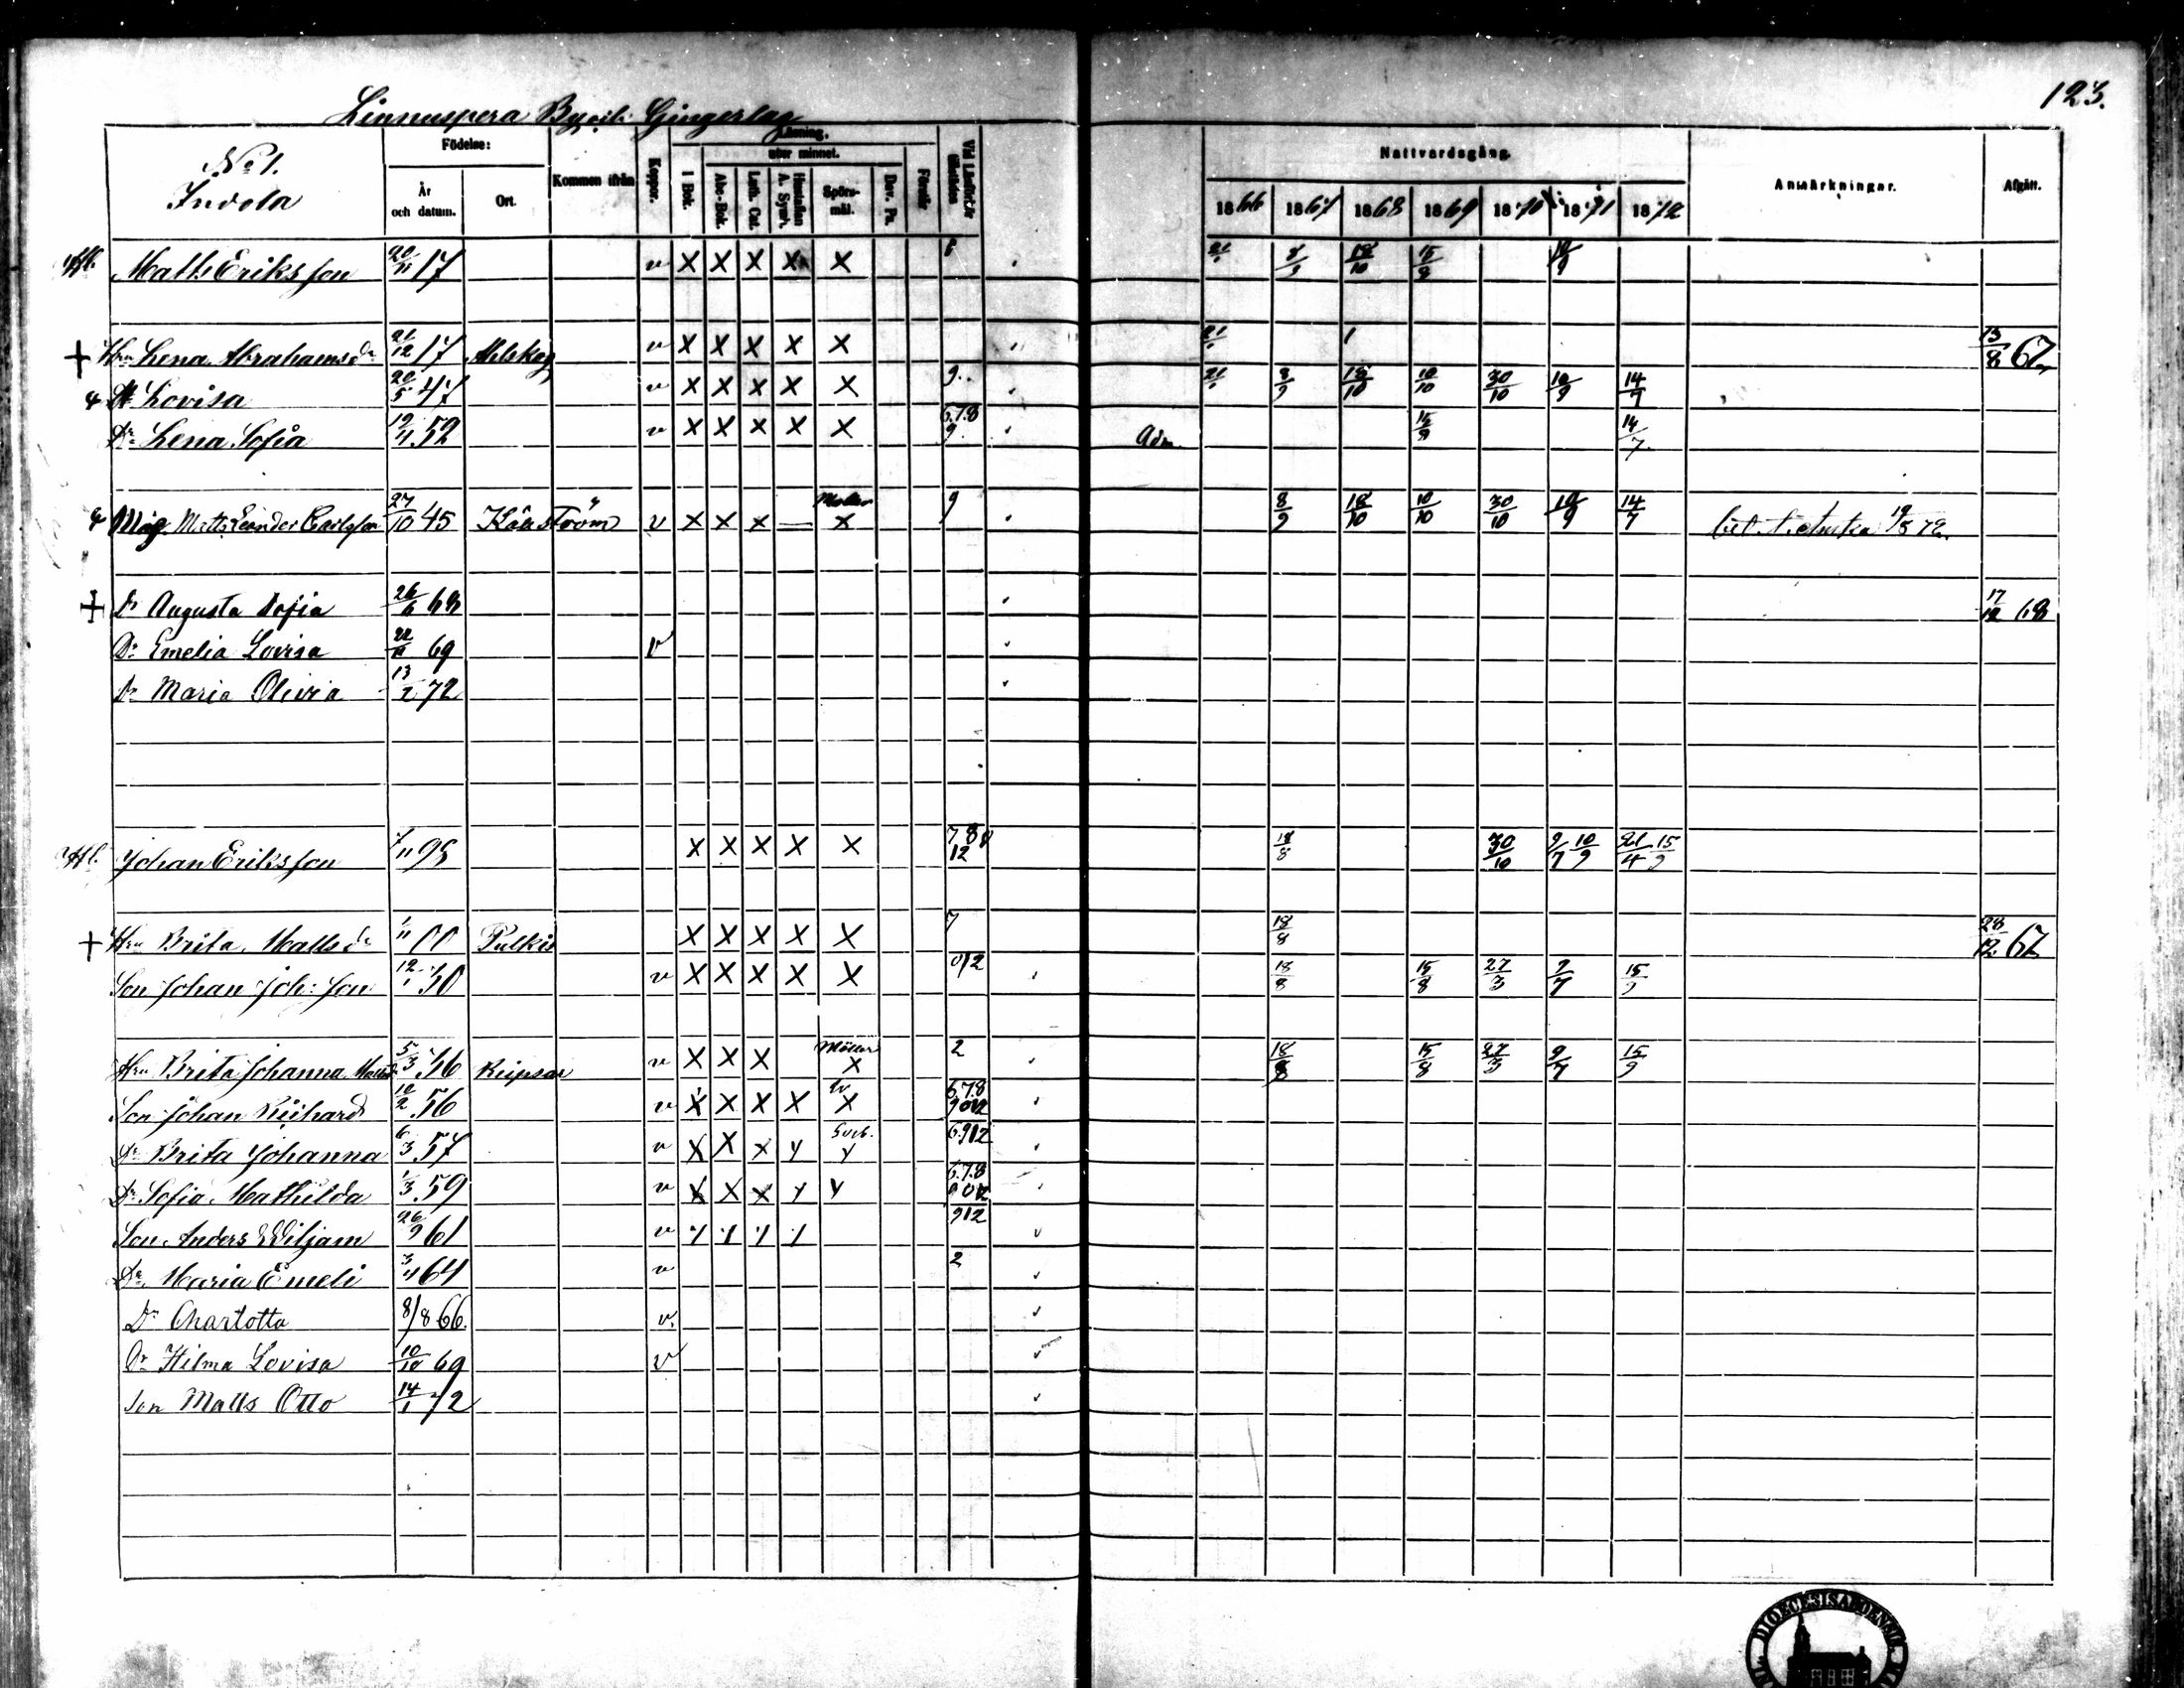 123.
Linnuspera By och Gingerlag
No 1. Indola
Födelse: År och datum. Ort. Kommen ifrån Koppor. Läsning. I Bok. utur minnet. Abc-Bok. Luth. Cat. Hustaflan A. Symb. Spörsmål. Dav. Ps. Förstår Vid Läsförhör tillstädes
Nattvardsgång. 1866 1867 1868 1869 1870 1871 1872 Anmärkningar. Afgått.
Matts Eriksson 17 v X X X X X 18/10 15/8
+ Hru Lena Abrahamsdr 21/12 17 Ahlskog v X X X X X 13/8 67
Dr Lovisa 20/5 47 v X X X X X 9. 8/9 18/10 10/10 30/10 10/9 14/7
Dr Lena Sofia 19/4 52 v X X X X X 6.7.8 9. Adm. 15/8 14/7
Måg Matts Leander Carlsson 27/10 45 Kållström v X X X — X 9 8/9 18/10 10/10 30/10 10/9 14/7 19/5 72.
+ Dr Augusta Sofia 26/6 68 17/12 68
Dr Emelia Lovisa 69 v
Dr Maria Olivia 13/2 72
Johan Eriksson 95 X X X X X 7.8 12 18/8 30/10 9/7 10/9 21/4 15/9
+ Hru Brita Mattsdr 1/11 00 Pulkis X X X X X 7 18/8 28/12 67
Son Johan Joh:son 12/1 30 v X X X X X 012 18/8 15/8 27/3 9/7 15/9
Hru Brita Johanna Mattsdr 5/3 36 Reipsar v X X X Möller X 2 18/8 15/8 27/3 9/7 15/9
Son Johan Richard 10/2 56 v X X X X X 6.7.8 9012
Dr Brita Johanna 6/3 57 v X X X X Sveb. 6.912
Dr Sofia Mathilda 1/3 59 v X X X 6.7.8 9012
Son Anders Wiljam 26/9 61 v 912
Dr Maria Emeli 3/4 64 v 2
Dr Charlotta 8/8 66. v.
Dr Hilma Lovisa 10/10 69 v
Son Matts Otto 14/1 72
DIOECESIS ABOENSIS